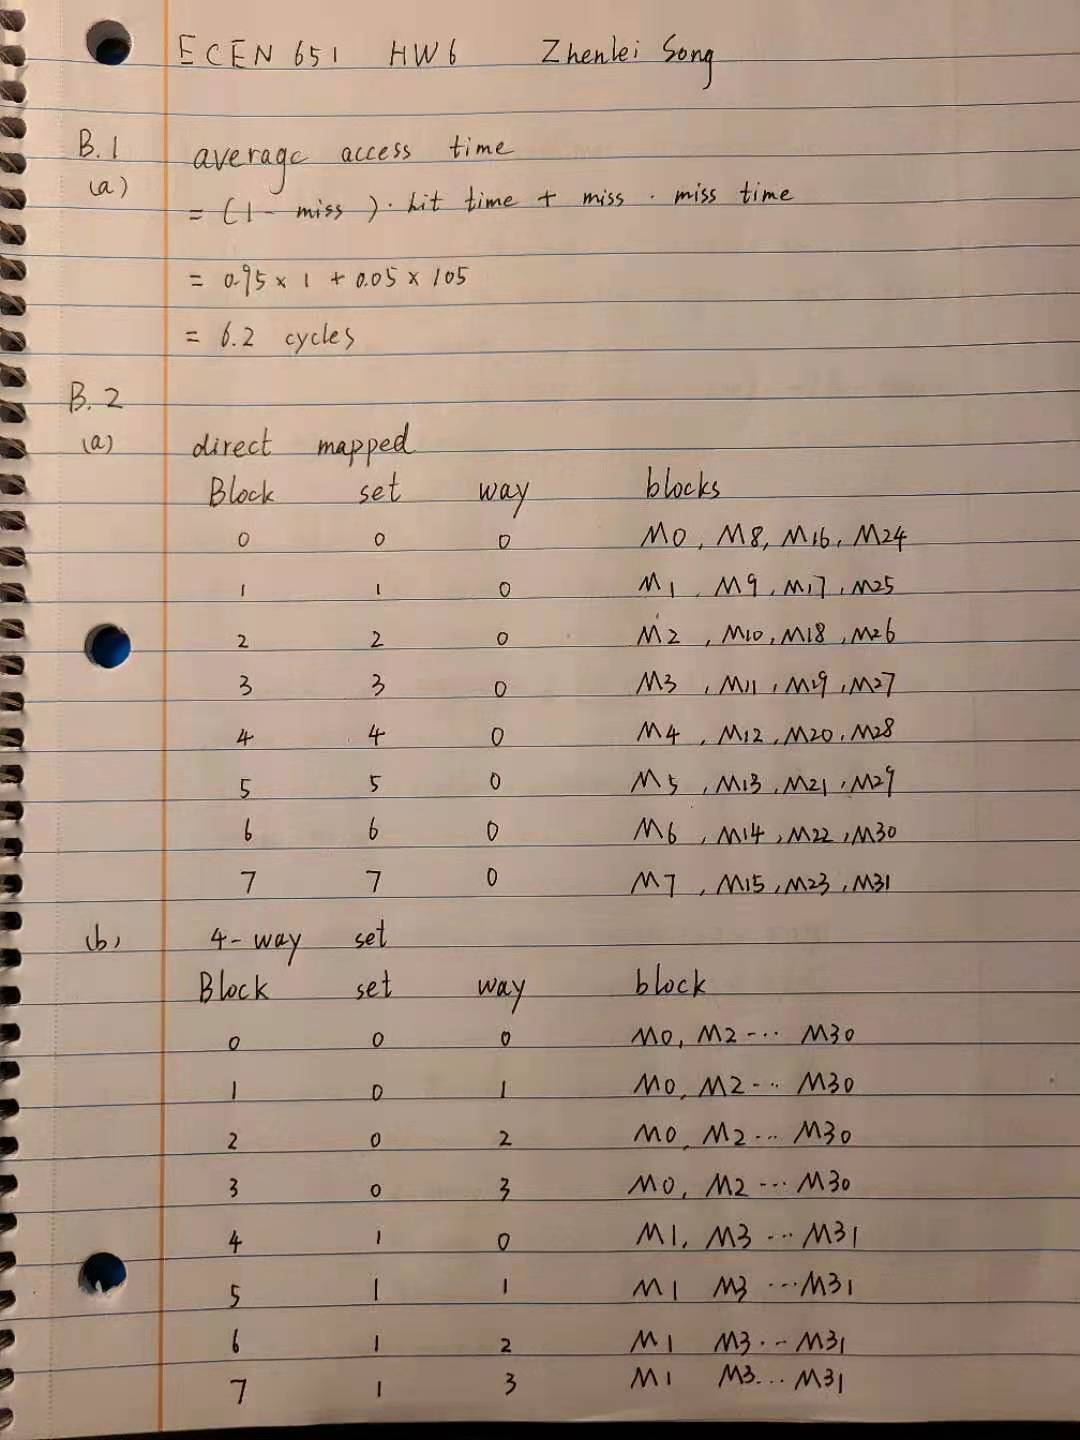 ECEN 651 HW6 Zhenlei Song
B.1 average access time
(a) = (1 - miss) · hit time + miss · miss time
= 0.95 × 1 + 0.05 × 105
= 6.2 cycles
B.2
(a) direct mapped
Block set way blocks
0 0 0 M0, M8, M16, M24
1 1 0 M1, M9, M17, M25
2 2 0 M2, M10, M18, M26
3 3 0 M3, M11, M19, M27
4 4 0 M4, M12, M20, M28
5 5 0 M5, M13, M21, M29
6 6 0 M6, M14, M22, M30
7 7 0 M7, M15, M23, M31
(b) 4-way set
Block set way block
0 0 0 M0, M2 ··· M30
1 0 1 M0, M2 ··· M30
2 0 2 M0, M2 ··· M30
3 0 3 M0, M2 ··· M30
4 1 0 M1, M3 ··· M31
5 1 1 M1 M3 ··· M31
6 1 2 M1 M3 ··· M31
7 1 3 M1 M3 ··· M31